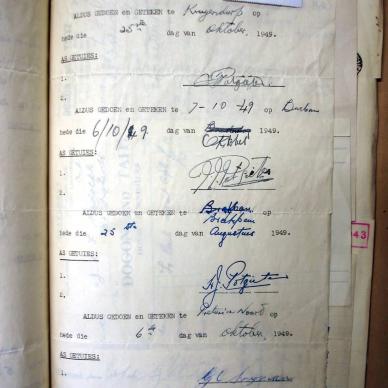 ALDUS GEDOEN en GETEKEN te Krugersdorp op
hede die 25ste dag van Oktober, 1949.
AS GETUIES:
1.
2.
ALDUS GEDOEN en GETEKEN te 7-10-49 op Durban
hede die 6/10/49. dag van Oktober 1949.
AS GETUIES:
1.
2.
ALDUS GEDOEN en GETEKEN te Brakpan op
Brakpan
hede die 25ste dag van Augustus 1949.
AS GETUIES:
1.
2.
ALDUS GEDOEN en GETEKEN te Pretoria Noord op
hede die 6de dag van Oktober, 1949.
AS GETUIES:
1.
43